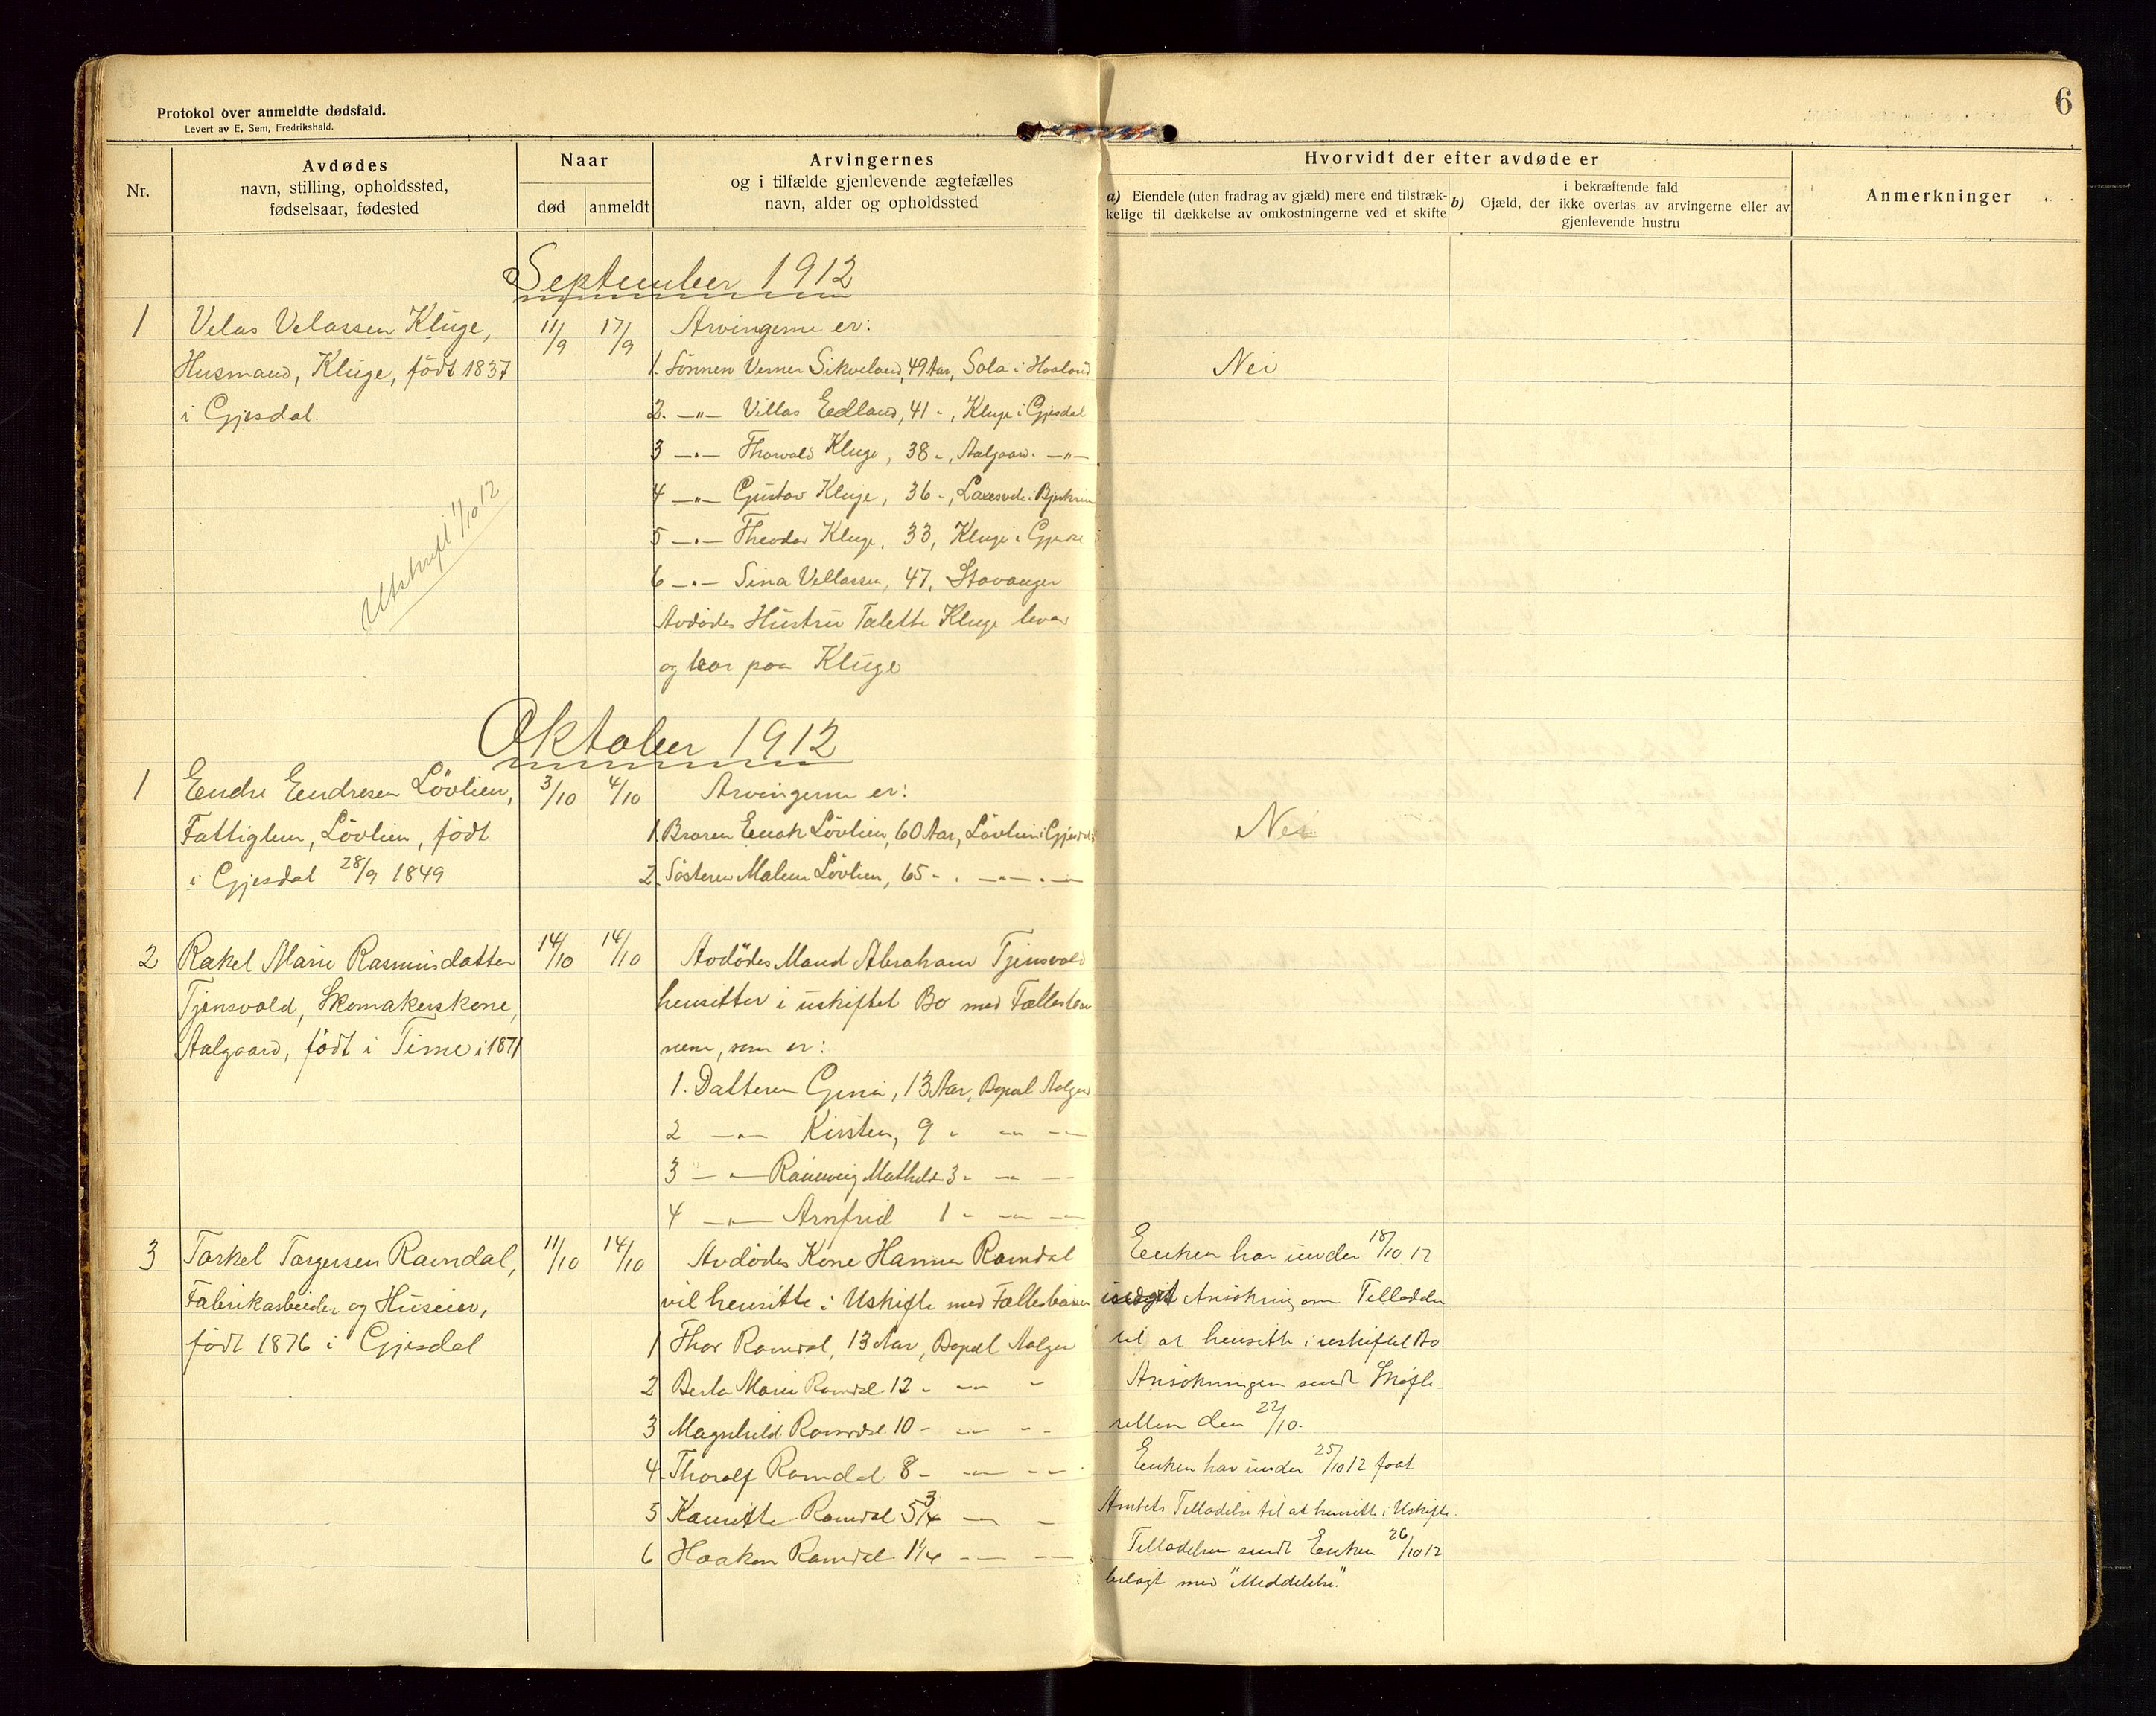 Protokol over anmeldte dødsfald.
Levert av E. Sem, Fredrikshald.
6
Nr.
Avdødes
navn, stilling, opholdssted,
fødselsaar, fødested
Naar
død
anmeldt
Arvingernes
og i tilfælde gjenlevende ægtefælles
navn, alder og opholdssted
Hvorvidt der efter avdøde er
a) Eiendele (uten fradrag av gjæld) mere end tilstræk-
kelige til dækkelse av omkostningerne ved et skifte
i bekræftende fald
b) Gjæld, der ikke overtas av arvingerne eller av
gjenlevende hustru
Anmerkninger
September 1912
1
Velas Velassen Kluge,
Husmand, Kluge, født 1837
i Gjesdal.
11/9
17/9
Arvingerne er:
1. Sönnen Verner Sikveland, 49 Aar, Sola i Haaland
2. —"— Villas Edland, 41 -, Kluge i Gjesdal
3 —"— Thorvald Kluge, 38 -, Aalgaard —"—
4 —"— Gustav Kluge, 36 -, i Bjerkrein
5 —"— Theodor Kluge, 33, Kluge i Gjesdal
6 —"— Sina Vellassen, 47, Stavanger
Avdödes Hustru Talette Kluge lever
og bor paa Kluge
Nei
Utskrift 1/10 12
Oktober 1912
1
Endre Endresen Lövlien,
Fattiglem, Lövlien, født
i Gjesdal 28/9 1849
3/10
4/10
Arvingerne er:
1. Broren Enok Lövlien, 60 Aar, Lövlien i Gjesdal
2. Søsteren Malene Lövlien, 65 - . —"— . —
Nei
2
Rakel Marie Rasmusdatter
Tjensvold, Skomakerskone,
Aalgaard, født i Time i 1871
14/10
14/10
Avdödes Mand Abraham Tjensvold
hensitter i uskiftet Bo med Fællesbør
nene, som er:
1. Datteren Gina, 13 Aar, Bopæl Aalgaard
2 —"— Kirsten, 9 " —"— —
3 —"— Mathilde 3 - —"— —
4 —"— Arnfrid 1 - —"— —
3
Torkel Torgersen Ravndal,
Fabrikarbeider og Huseier,
født 1876 i Gjesdal
11/10
14/10
Avdødes Kone Hanna Ravndal
vil hensitte i Uskifte med Fællesbørnene
1 Thor Ravndal, 13 Aar, Bopæl Aalgaard
2 Berta Marie Ravndal 12 - —"— -
3 Magnhild Ravndal 10 - —"— - -
4. Thoralf Ravndal 8 - —"— - -
5 Ravndal 5 3/4 — -
6 Haakon Ravndal 1 1/4 — —
Enken har under 18/10 12
Ansökning om Tilladelse
til at hensitte i uskiftet Bo
Ansökningen sendt Skifte-
retten den 22/10.
Enken har under 25/10 12 faat
Amtets Tilladelse til at hensitte i Uskifte.
Tilladelsen sendt Enken 26/10 12
bilagt med "Meddelelse".